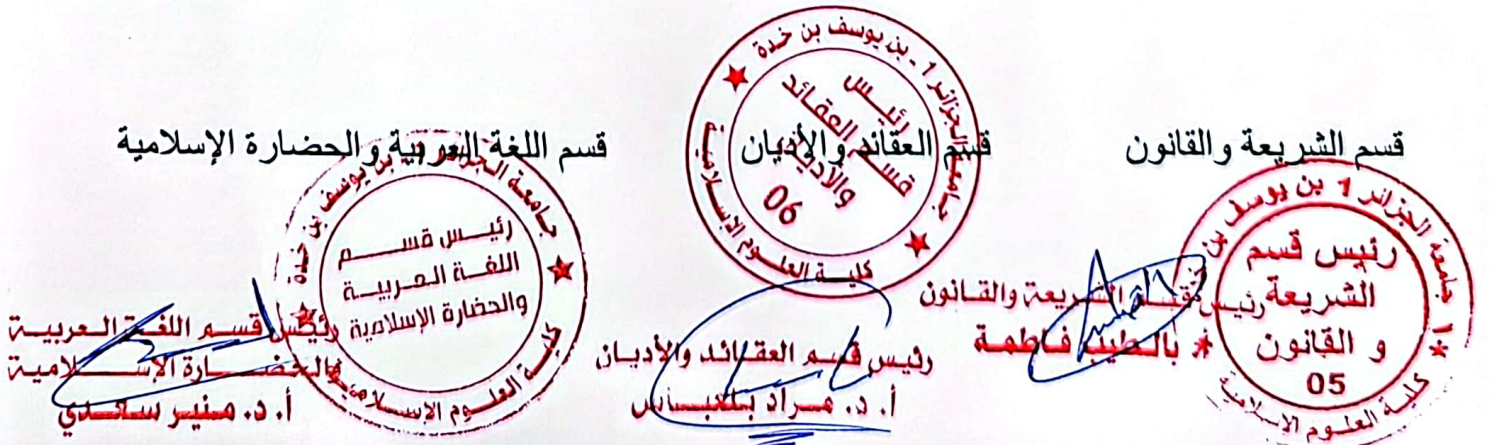 قسم الشريعة والقانون
قسم العقائد والأديان
قسم اللغة العربية والحضارة الإسلامية
جامعة الجزائر 1 بن يوسف بن خدة
رئيس قسم
الشريعة
و القانون
05
كلية العلوم الإسلامية
رئيس قسم الشريعة والقانون
فاطمة
جامعة الجزائر 1 - بن يوسف بن خدة
رئيس
قسم العقائد
والأديان
06
كلية العلوم الإسلامية
رئيس قسم العقائد والأديان
أ. د. مراد بلعباس
جامعة الجزائر بن يوسف بن خدة
رئيس قسم
اللغة العربية
والحضارة الإسلامية
كلية العلوم الإسلامية
رئيس قسم اللغة العربية
والحضارة الإسلامية
أ. د. منير سعدي